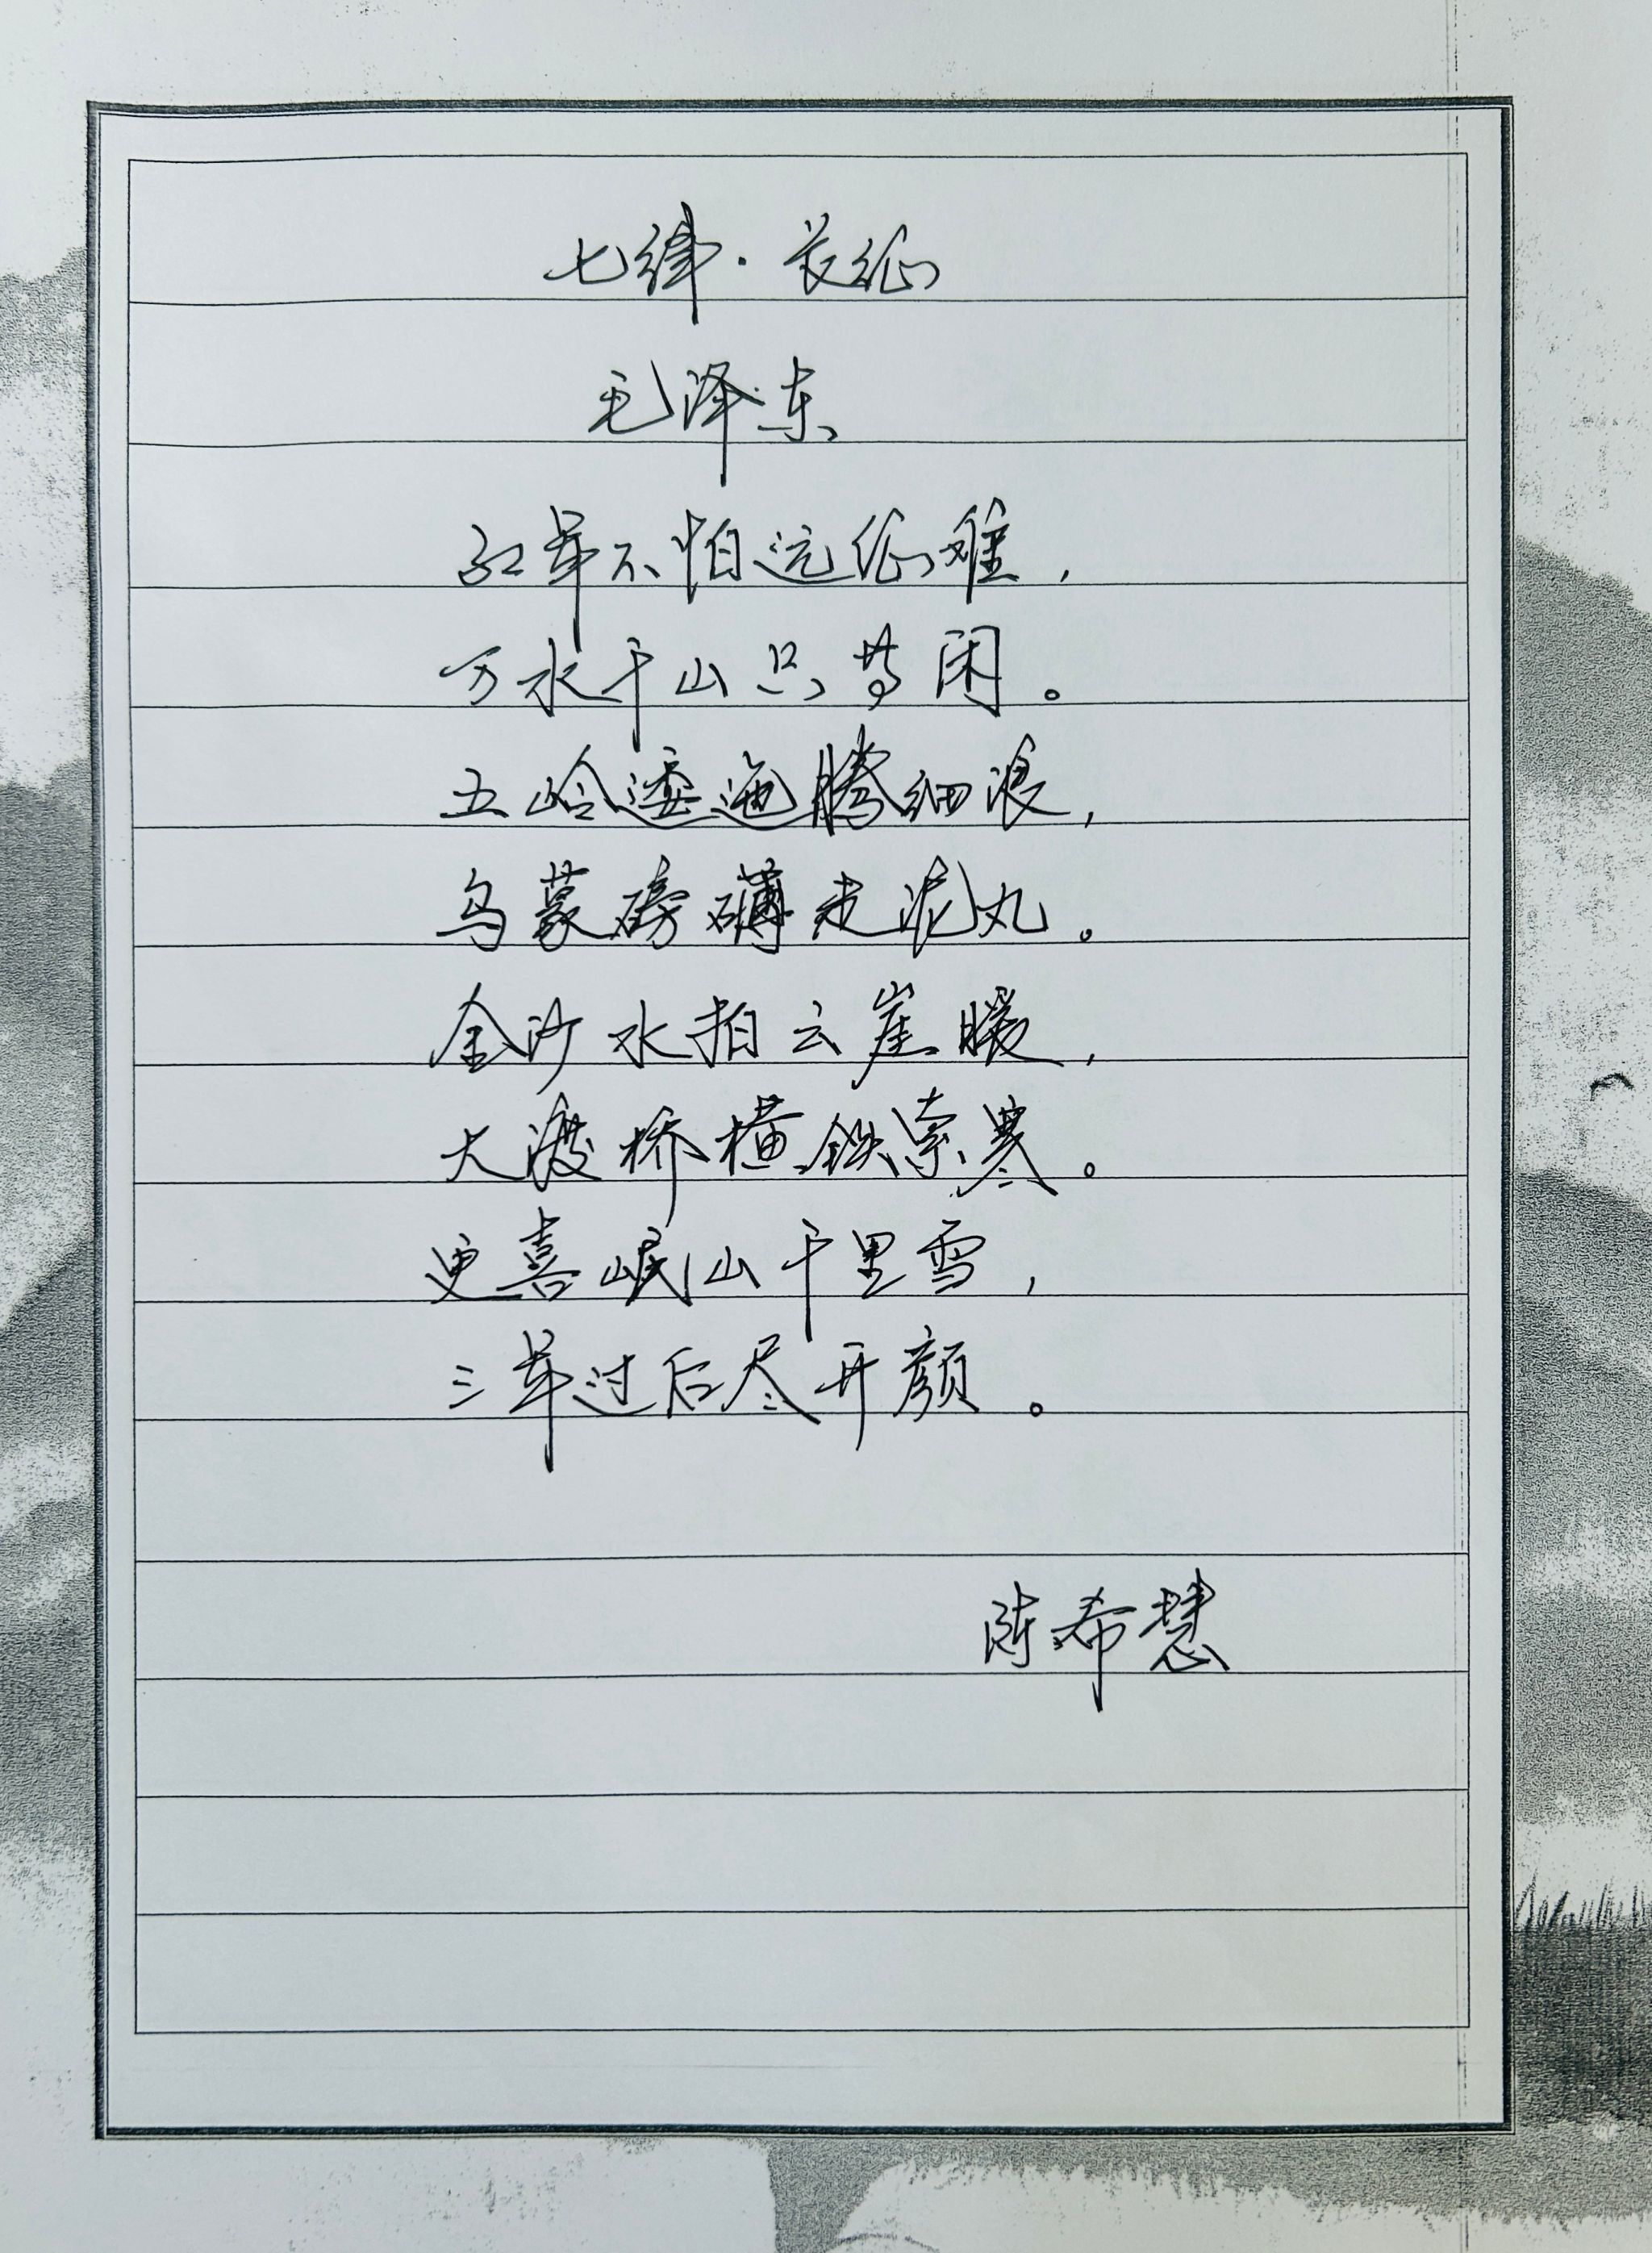 七律·长征
毛泽东
红军不怕远征难,
万水千山只等闲。
五岭逶迤腾细浪,
乌蒙磅礴走泥丸。
金沙水拍云崖暖,
大渡桥横铁索寒。
更喜岷山千里雪,
三军过后尽开颜。
陈希慧